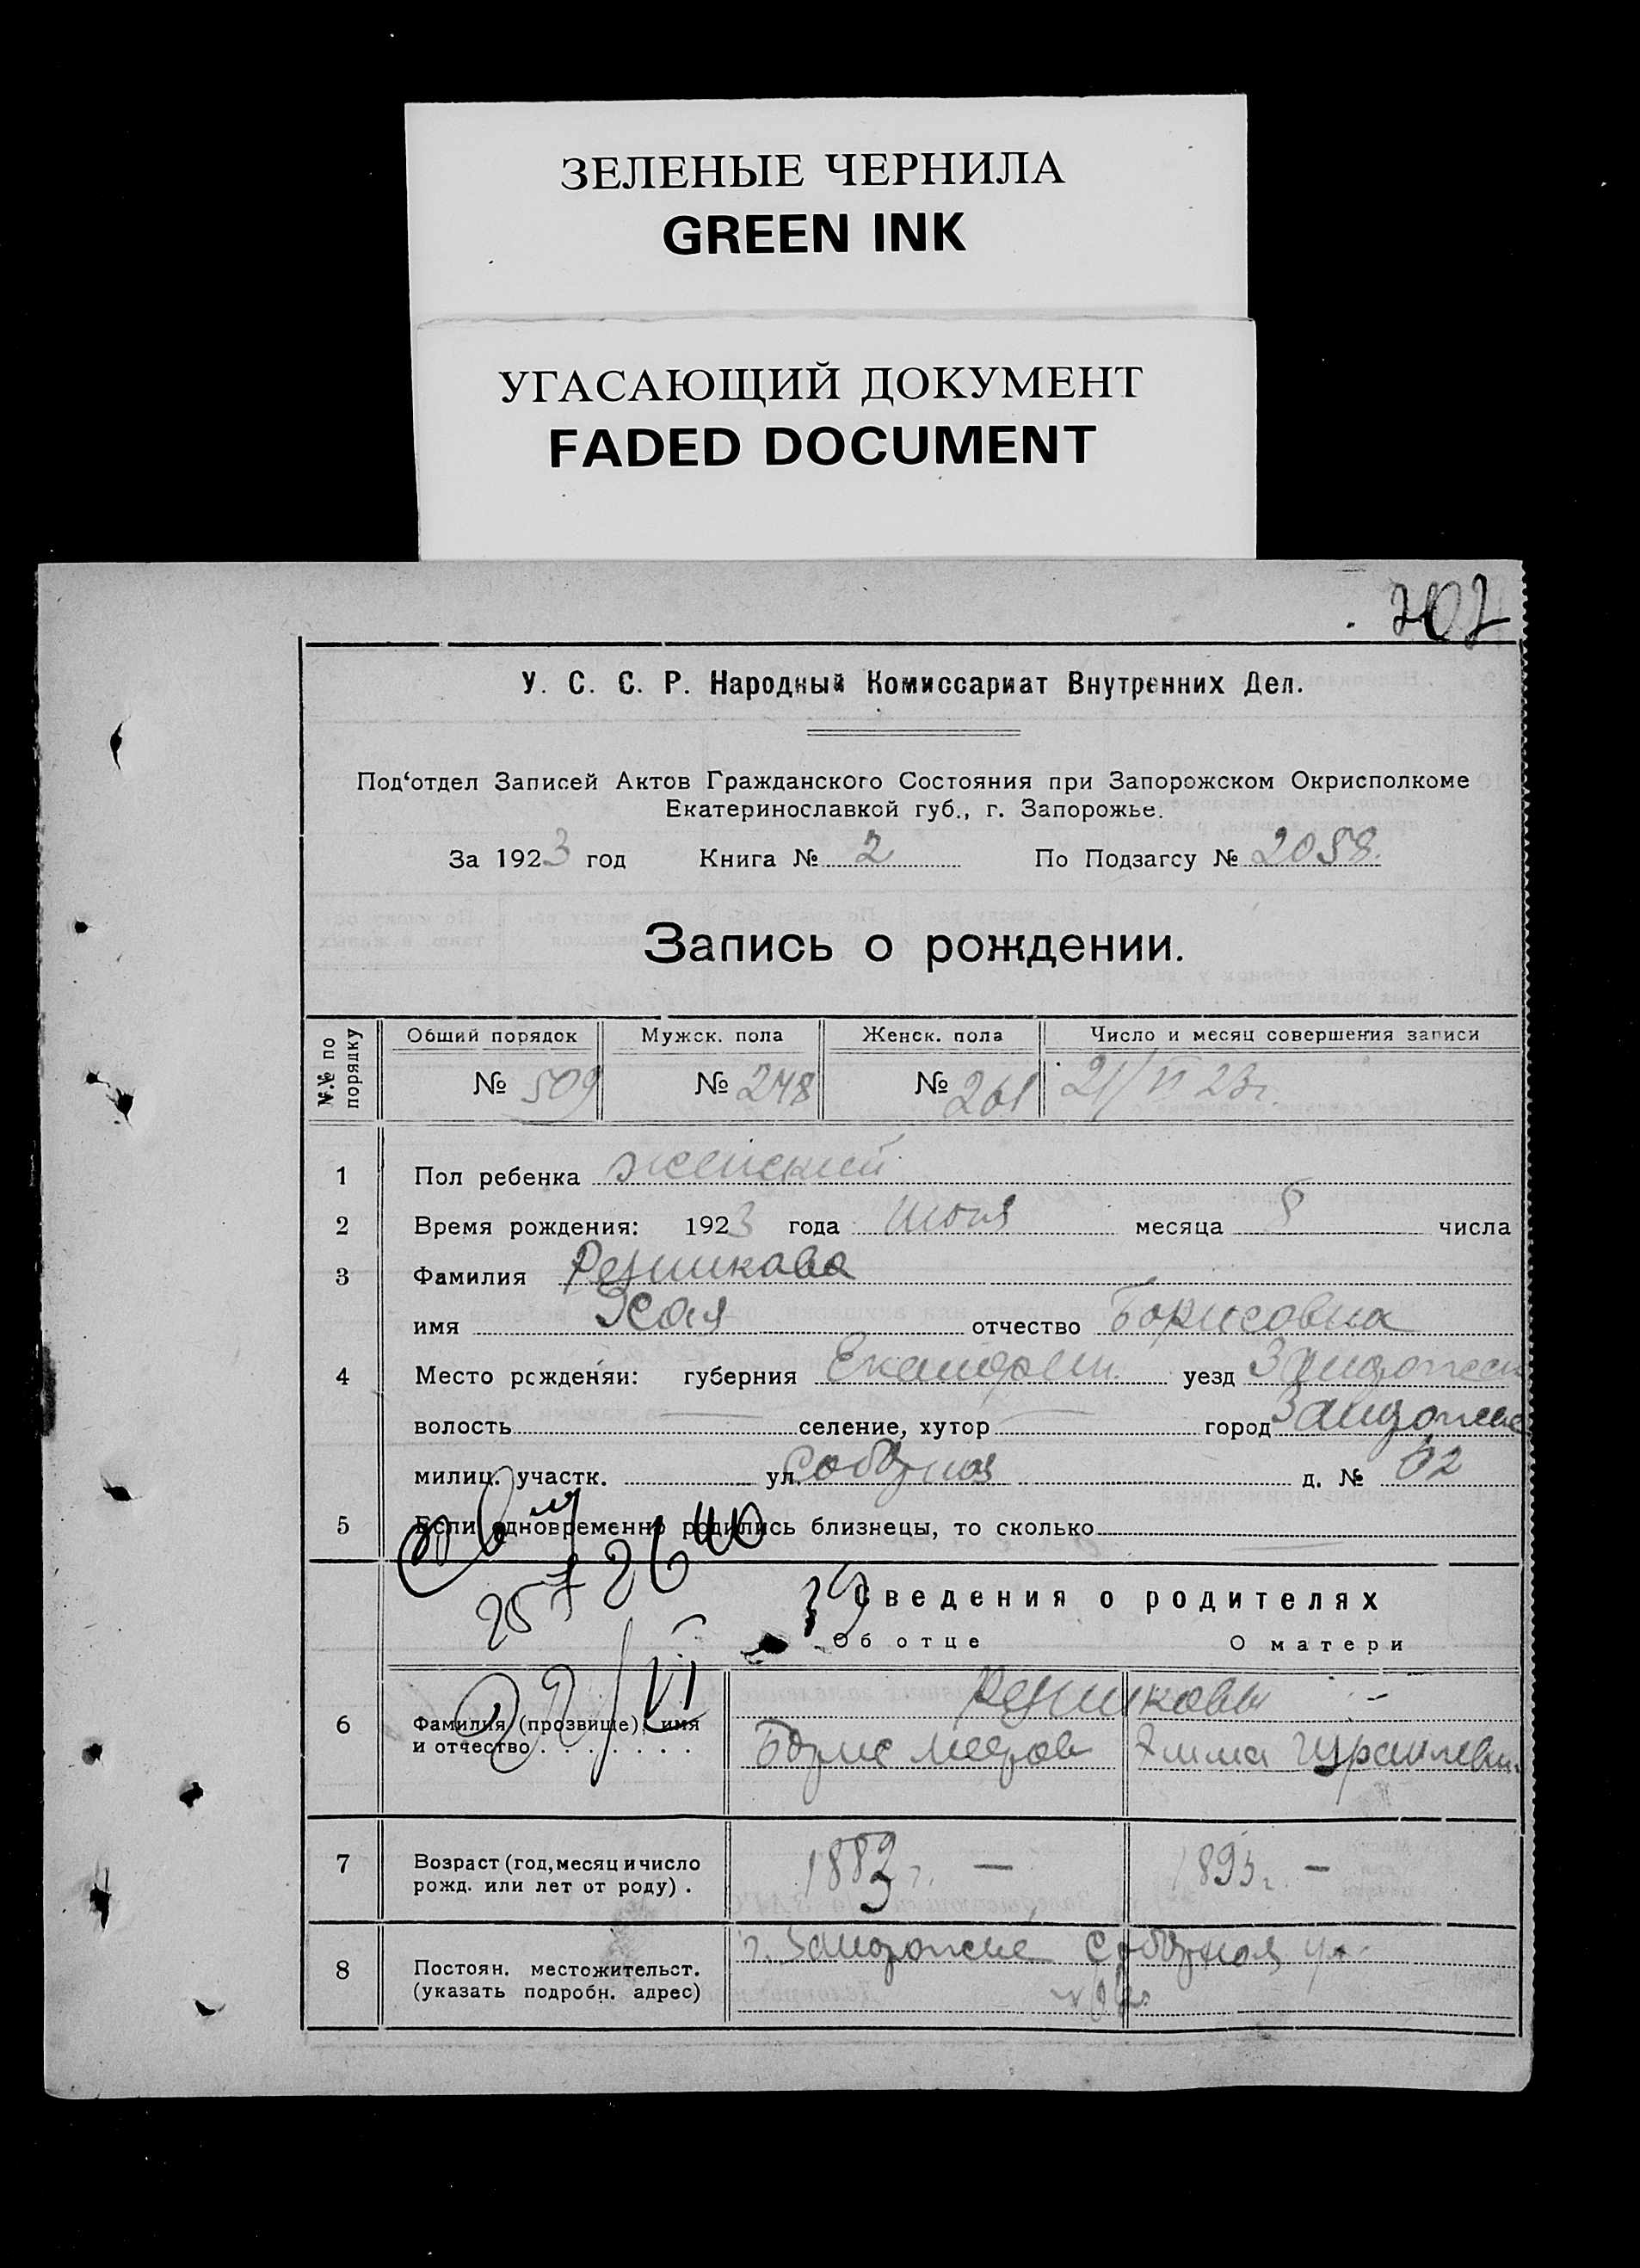 ЗЕЛЕНЫЕ ЧЕРНИЛА
GREEN INK
УГАСАЮЩИЙ ДОКУМЕНТ
FADED DOCUMENT
207
У. С. С. Р. Народный Комиссариат Внутренних Дел.
Под‘отдел Записей Актов Гражданского Состояния при Запорожском Окрисполкоме
Екатеринославкой губ., г. Запорожье.
За 1923 год Книга № 2 По Подзагсу № 2058.
Запись о рождении.
№.№ по порядку Общий порядок Мужск. пола Женск. пола Число и месяц совершения записи
№ 509 № 248 № 261 21/VI 23г.
1 Пол ребенка женский
2 Время рождения: 1923 года июня месяца 8 числа
3 Фамилия Резникова
имя отчество Борисовна
4 Место рождения: губерния Екатерин. уезд Запорожск
волость — селение, хутор — город Запорожье
милиц. участк. ул. Соборная д. № 62
5 Если одновременно родились близнецы, то сколько —
25 26
Сведения о родителях
Об отце О матери
22/VI
Резниковы
6 Фамилия (прозвище), имя
и отчество . . . . . . . Борис Мееров
7 Возраст (год, месяц и число 1883 г. — 1893 г. —
рожд. или лет от роду) .
8 Постоян. местожительст. г. Запорожье Соборная ул.
(указать подробн. адрес) № 62